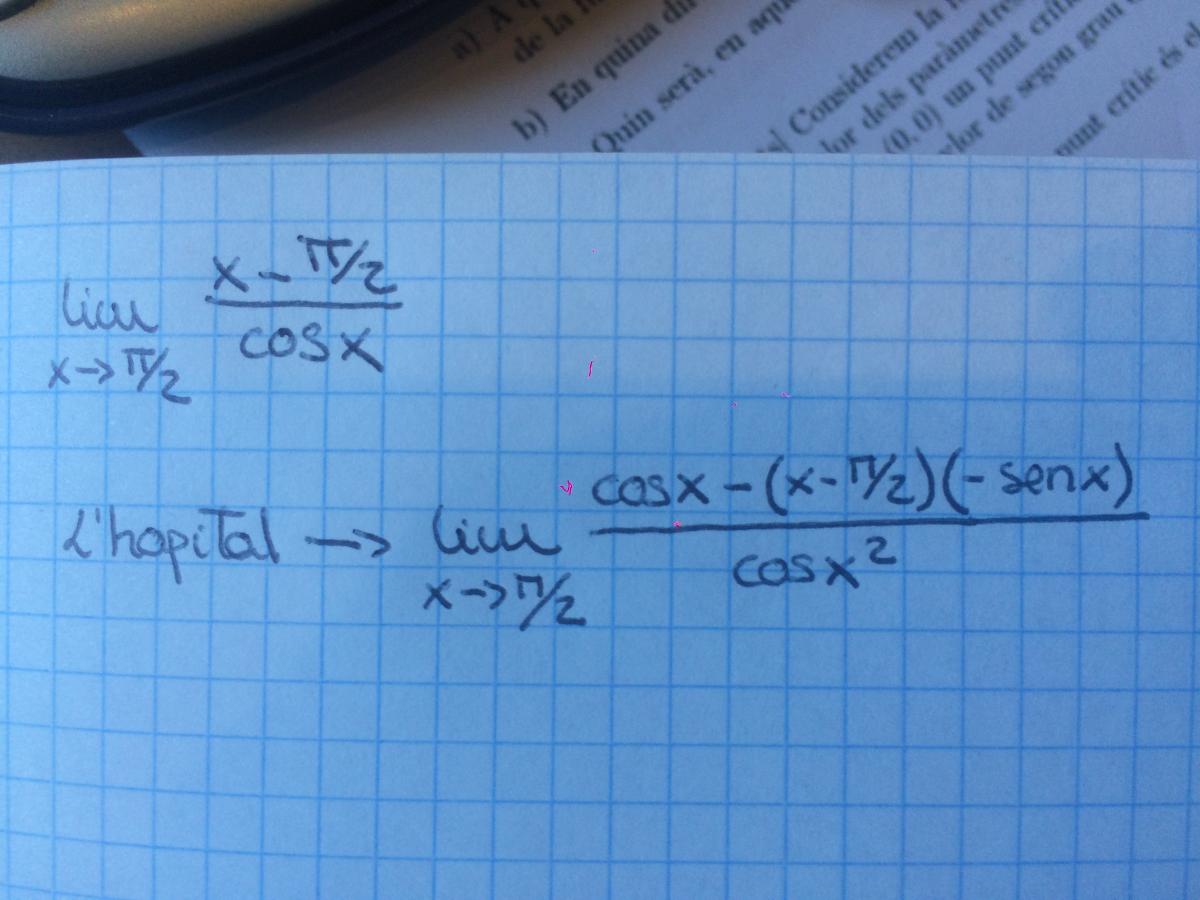 a) A
de la
b) En quina
Quin serà, en
Considerem la
dels paràmetres
(0, 0) un punt
de segon grau
crític és el
lim x→π/2 (x - π/2)/(cos x)
L'hopital → lim x→π/2 (cosx - (x - π/2)(- senx))/(cosx²)